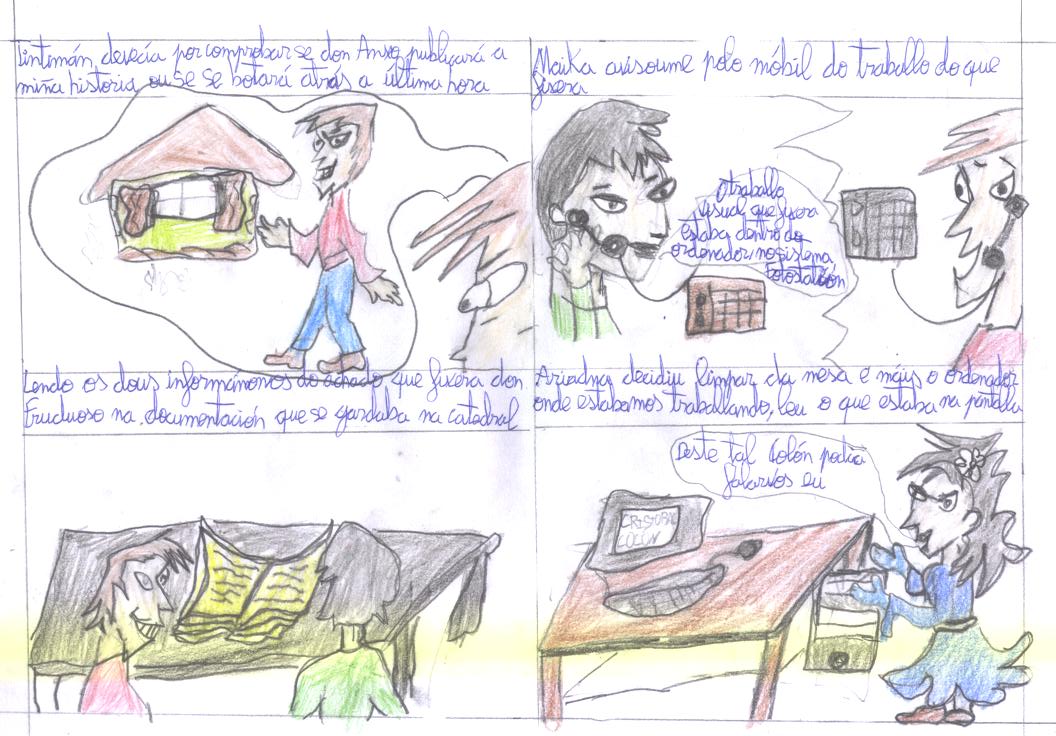 Tintimán, devecía por comprobar se don Anxo publicará a
miña historia ou se se botará atrás a última hora
Maika avisoume polo móbil do traballo do que
fixera
O traballo
visual que fixera
estaba dentro do
ordenador, no sistema
Lendo os dous informámonos do achado que fixera don
Fructuoso na documentación que se gardaba na catedral
Ariadna decidiu limpar da mesa e máis o ordenador
onde estabamos traballando, leu o que estaba na pantalla
Deste tal Colón podía
falarvos eu
CRISTOBAL
COLÓN